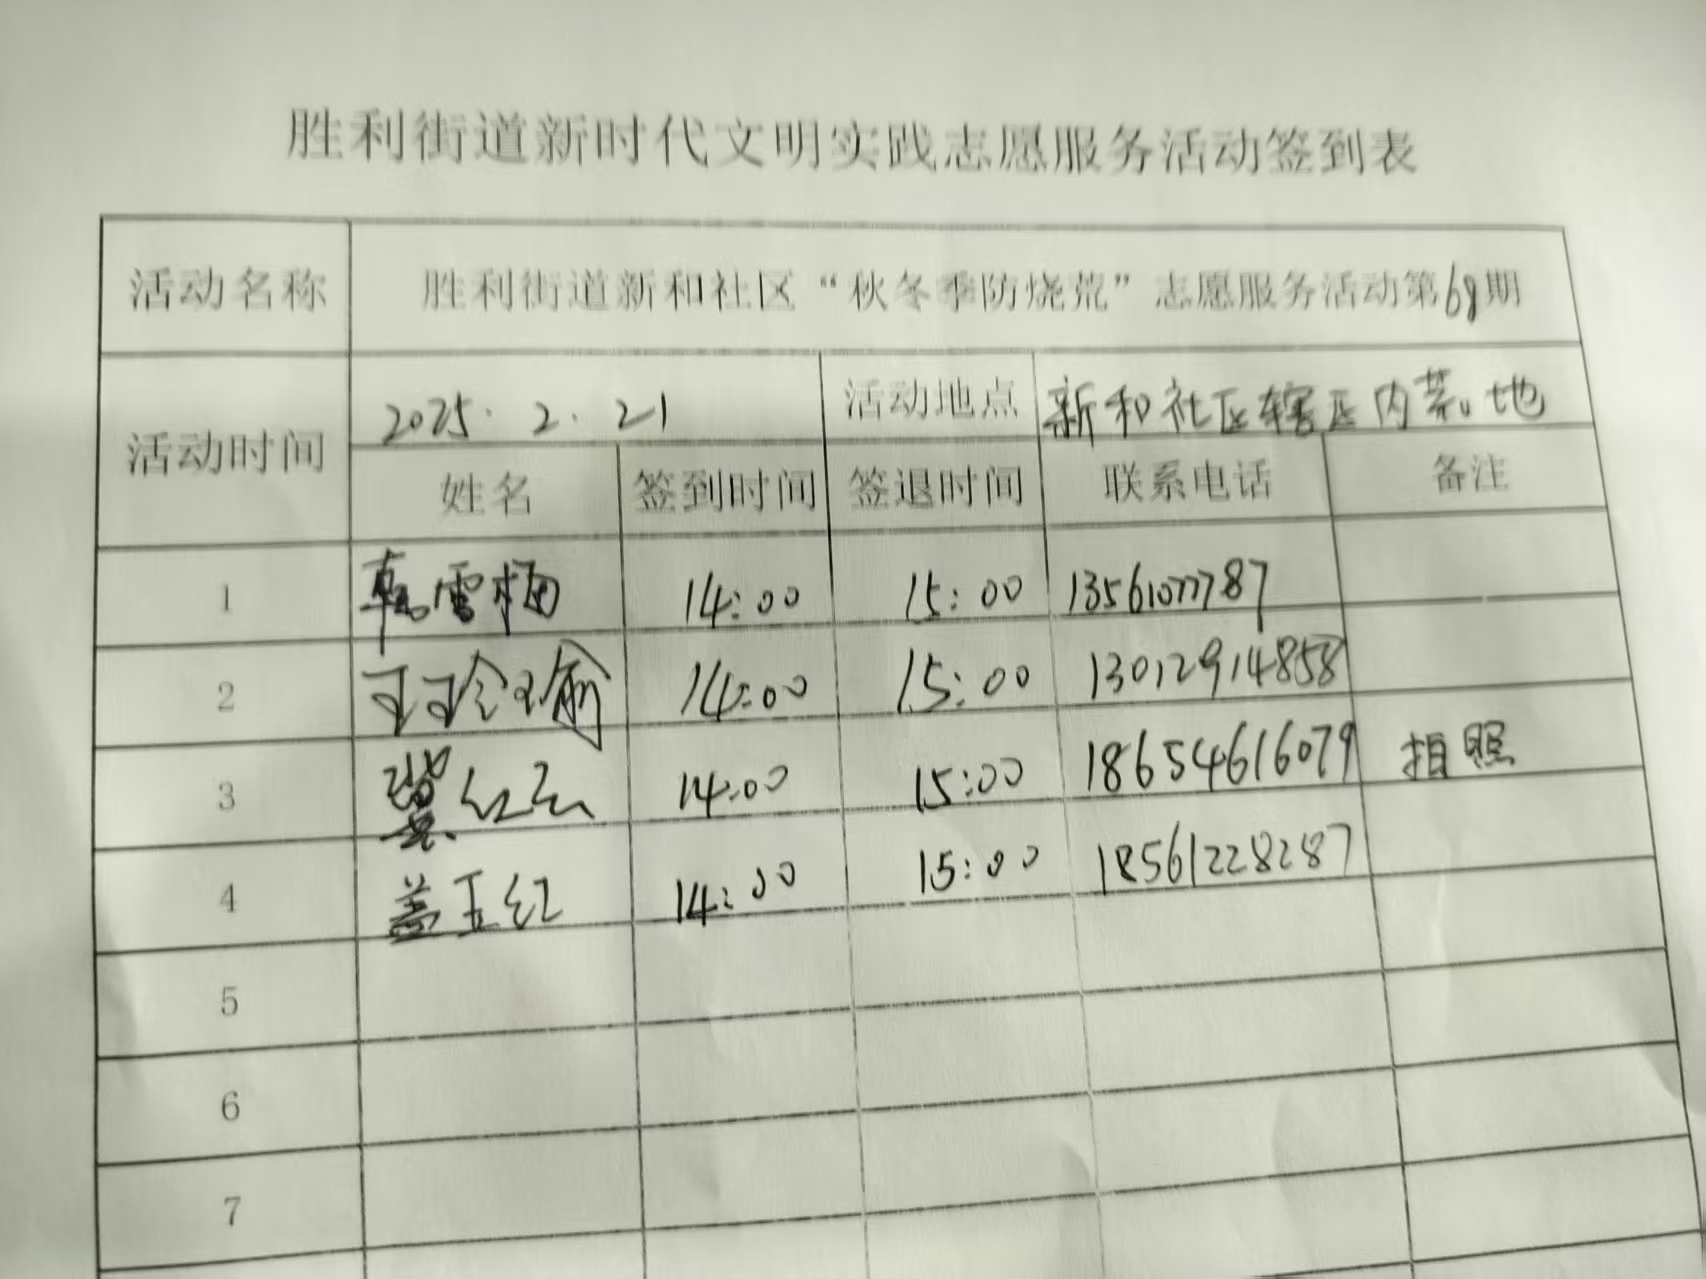 胜利街道新时代文明实践志愿服务活动签到表
活动名称 胜利街道新和社区“秋冬季防烧荒”志愿服务活动第68期
活动时间 2025.2.21 活动地点 新和社区辖区内荒地
姓名 签到时间 签退时间 联系电话 备注
1 韩雪梅 14:00 15:00 13561077787
2 14:00 15:00 13012914858
3 冀红云 14:00 15:00 18654616079 拍照
4 盖玉红 14:00 15:00 18561228287
5
6
7